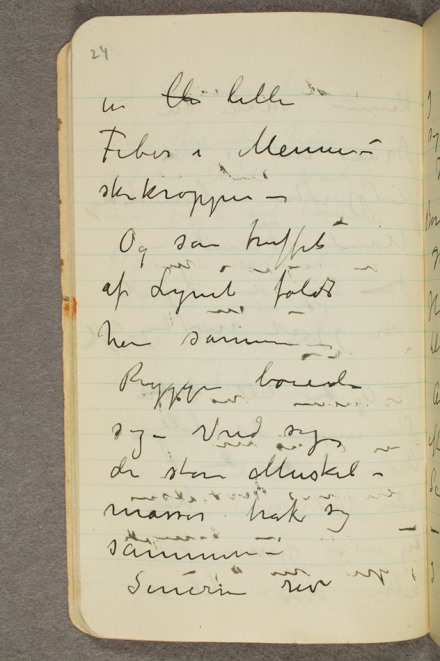 24
en lille
Fiber i Menne-
skekroppen –
Og som truffet
af Lynet faldt
han sammen –
Ryggen bøiede
sig – Vred sig
de store Muskel-
masser trak sig
sammen –
Senerne rev